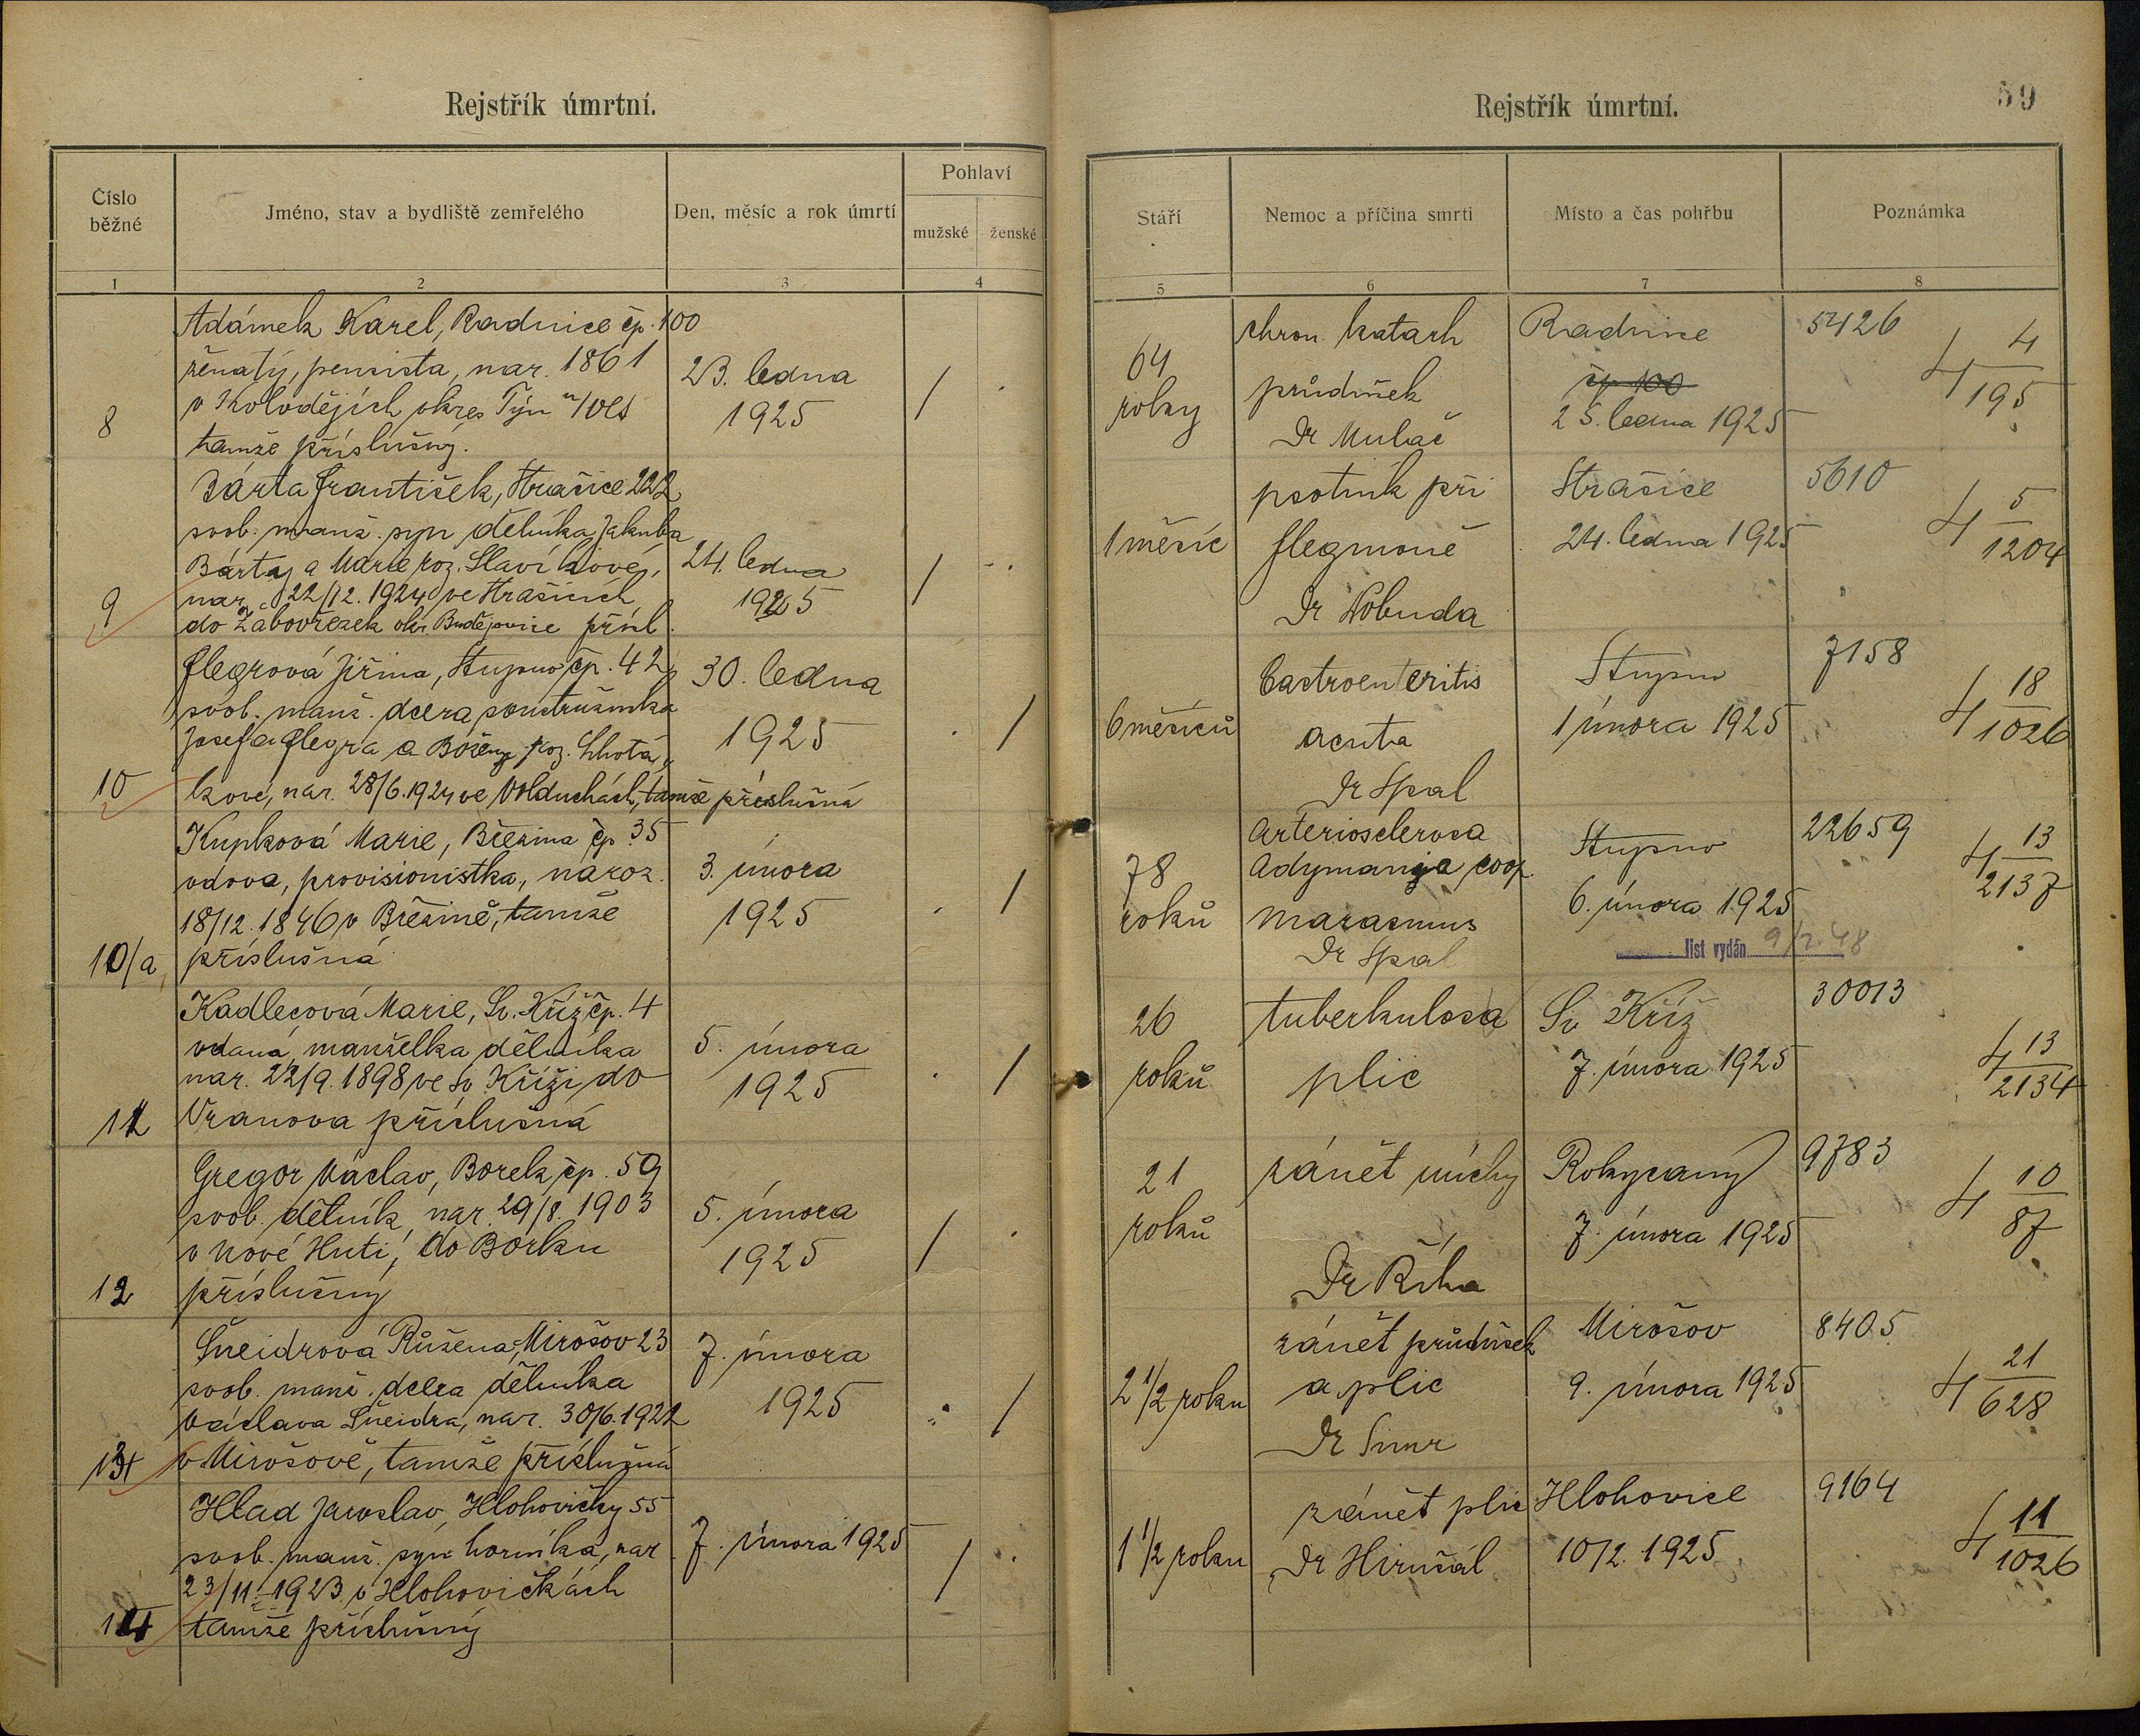 Rejstřík úmrtní.
Číslo běžné
Jméno, stav a bydliště zemřelého
Den, měsíc a rok úmrtí
Pohlaví
mužské
ženské
1
2
3
4
Adámek Karel, Radnice čp. 100
ženatý, pensista, nar. 1861
23. ledna
v Koloděјích okres Týn n/Vlt
1925
8
tamže příslušný.
Bárta František, Strašice 222
svob. manž. syn dělníka Jakuba
Bárty a Marie roz. Slavíkové,
24. ledna
nar. 22/12. 1924 ve Strašicích
1925
9
do Žabovřesek okr. Budějovice přísl.
Flegrová Jiřina, Stupno čp. 42
30. ledna
svob. manž. dcera soustružníka
Josefa Flegra a Boženy roz. Lhotá-
1925
10
kové, nar. 28/6. 1924 ve Volduchách, tamže příslušná
Kupková Marie, Březina čp. 35
vdova, provisionistka, naroz.
3. února
18/12. 1846 v Březině, tamže
1925
10/a
příslušná
Kadlecová Marie, Sv. Kříž čp. 4
vdaná, manželka dělníka
5. února
nar. 22/9. 1898 ve Sv. Kříži, do
1925
11
Vranova příslušná
Gregor Václav, Borek čp. 59
svob. dělník, nar. 29/8. 1903
5. února
v Nové Huti, do Borku
1925
12
příslušný
Šneidrová Růžena, Mirošov 23
7. února
svob. manž. dcera dělníka
1925
Václava Šneidra, nar. 30/6. 1922
13
v Mirošově, tamže příslušná
Hlad Jaroslav, Hlohovičky 55
svob. manž. syn horníka, nar.
7. února 1925
23/11. 1923 v Hlohovičkách
14
tamže příslušný
Rejstřík úmrtní.
59
Stáří
Nemoc a příčina smrti
Místo a čas pohřbu
Poznámka
5
6
7
8
chron. katarh
Radnice
5426
4
64
průdušek
čp 100
4
195
roky
Dr Mulač
25. ledna 1925
psotník při
Strašice
5610
5
1 měsíc
flegmoně
24. ledna 1925
4
1204
Dr Wobuda
Gastroenteritis
Stupno
7158
18
6 měsíců
acuta
1 února 1925
4
1026
Dr Spal
Arteriosclerosa
Stupno
22659
13
78
Adymania coop.
4
2137
roků
marasmus
6. února 1925
Dr Spal
list vydán 9/2. 48
26
tuberkulosa
Sv Kříž
30013
13
roků
plic
7. února 1925
4
2134
21
zánět míchy
Rokycany
9783
10
roků
7. února 1925
4
87
Dr Říha
zánět průdušek
Mirošov
8405
21
2 1/2 roku
a plic
9. února 1925
4
628
zánět plic
Hlohovice
9164
11
1 1/2 roku
Dr Hirušál
10/2. 1925
4
1026